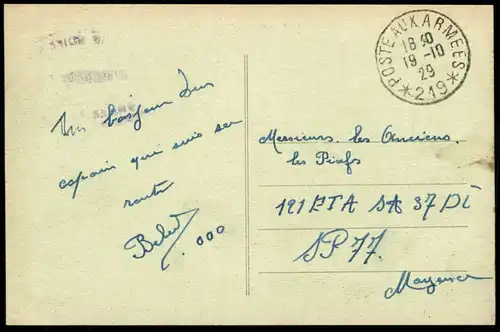 POSTE AUX ARMEES
18 30
19-10
29
*219*
Un bonjour d'un
copain qui suis sa
route
Messieurs les Anciens
les Piafs
121 ETA SA 37 DI
SP 77.
Mayence